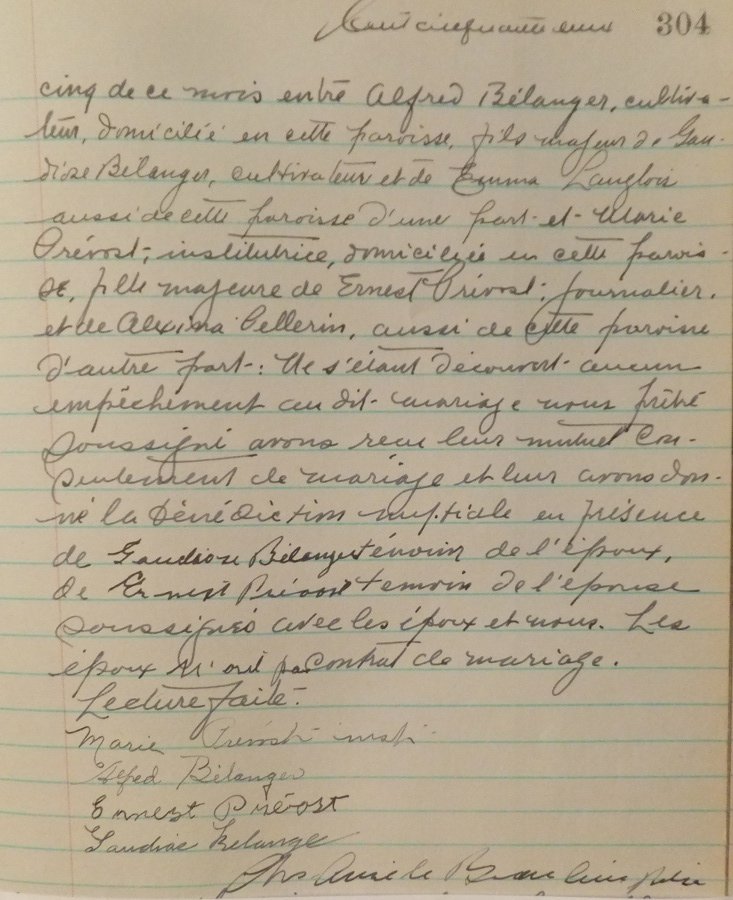 304
cinq de ce mois entre Alfred Bélanger, cultiva-
teur, domicilié en cette paroisse, fils majeur de Gau-
diose Bélanger, cultivateur et de Emma Langlois
aussi de cette paroisse d'une part et Marie
Prévost, institutrice, domiciliée en cette parois-
se, fille majeure de Ernest Prévost, journalier,
et de Alexina Pellerin, aussi de cette paroisse
d'autre part: Ne s'étant découvert aucun
empêchement au dit mariage nous prêtre
soussigné avons reçu leur mutuel con-
sentement de mariage et leur avons don-
né la bénédiction nuptiale en présence
de Gaudiose Bélanger témoin de l'époux,
de Ernest Prévost témoin de l'épouse
soussignés avec les époux et nous. Les
époux n'ont pas contrat de mariage.
Lecture faite.
Marie Prévost inst.
Alfred Bélanger
Ernest Prévost
Gaudiose Belanger